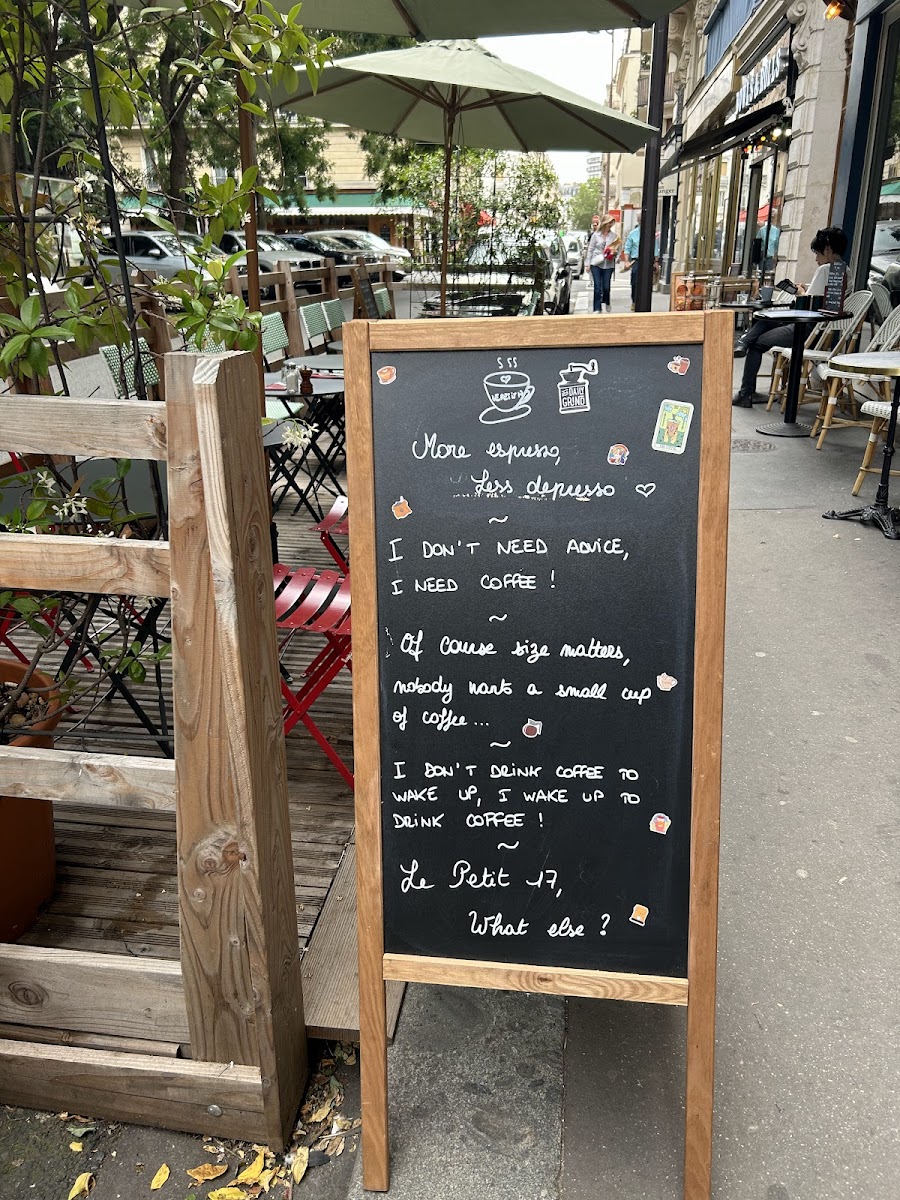 THE DAILY
GRIND
More espresso,
Less depresso
~
I DON'T NEED ADVICE,
I NEED COFFEE !
~
Of course size matters,
nobody wants a small cup
of coffee...
~
I DON'T DRINK COFFEE TO
WAKE UP, I WAKE UP TO
DRINK COFFEE !
~
Le Petit 17,
What else ?